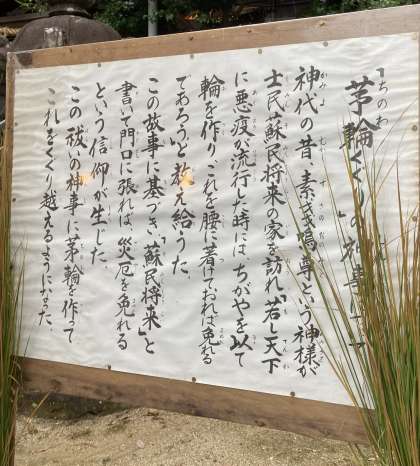 「茅輪くぐり」の神事
神代の昔、素盞嗚尊という神様が
士民蘇民将来の家を訪れ「若し天下
に悪疫が流行た時には、ちがやを以て
輪を作り、これを腰に着けておれば免れる
であろう」と教え給うた。
この故事に基づき「蘇民将来」と
書いて門口に張れば、災厄を免れる
という信仰が生じた。
この祓いの神事に茅輪を作って
これをくぐり越えるようになった。